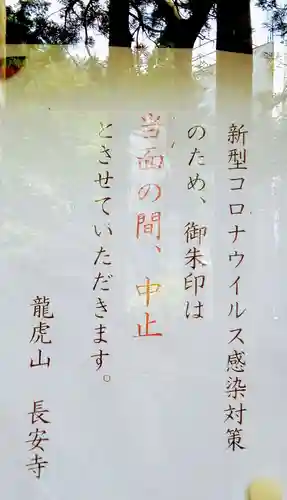 新型コロナウイルス感染対策
のため、御朱印は
当面の間、中止
とさせていただきます。
龍虎山　長安寺